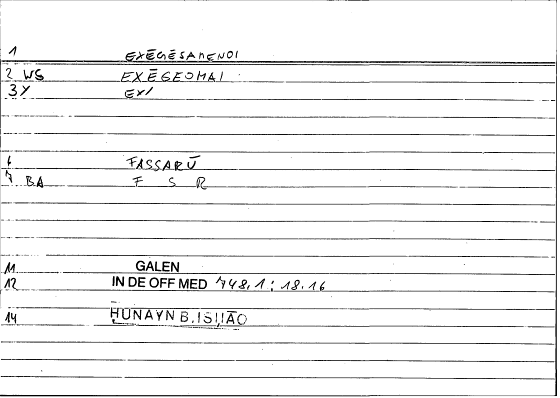 1 EXĒGĒSAMENOI
2 WS EXĒGEOMAI
3 Y EX/
6 FASSARŪ
7 BA F S R
11 GALEN
12 IN DE OFF MED 748,1 ; 18.16
14 HUNAYN B.ISḤĀQ